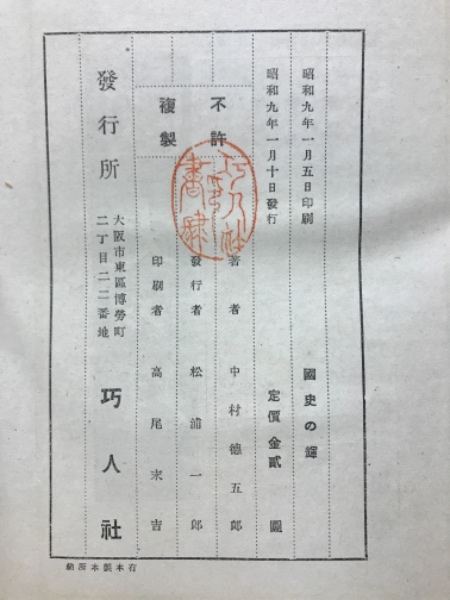 昭和九年一月五日印刷
國史の輝
昭和九年一月十日發行
定價金貳圓
不許
複製
著者 中村德五郎
發行者 松浦一郎
印刷者 高尾末吉
發行所
大阪市東區博勞町
二丁目二二番地
巧人社
巧人社
書肆